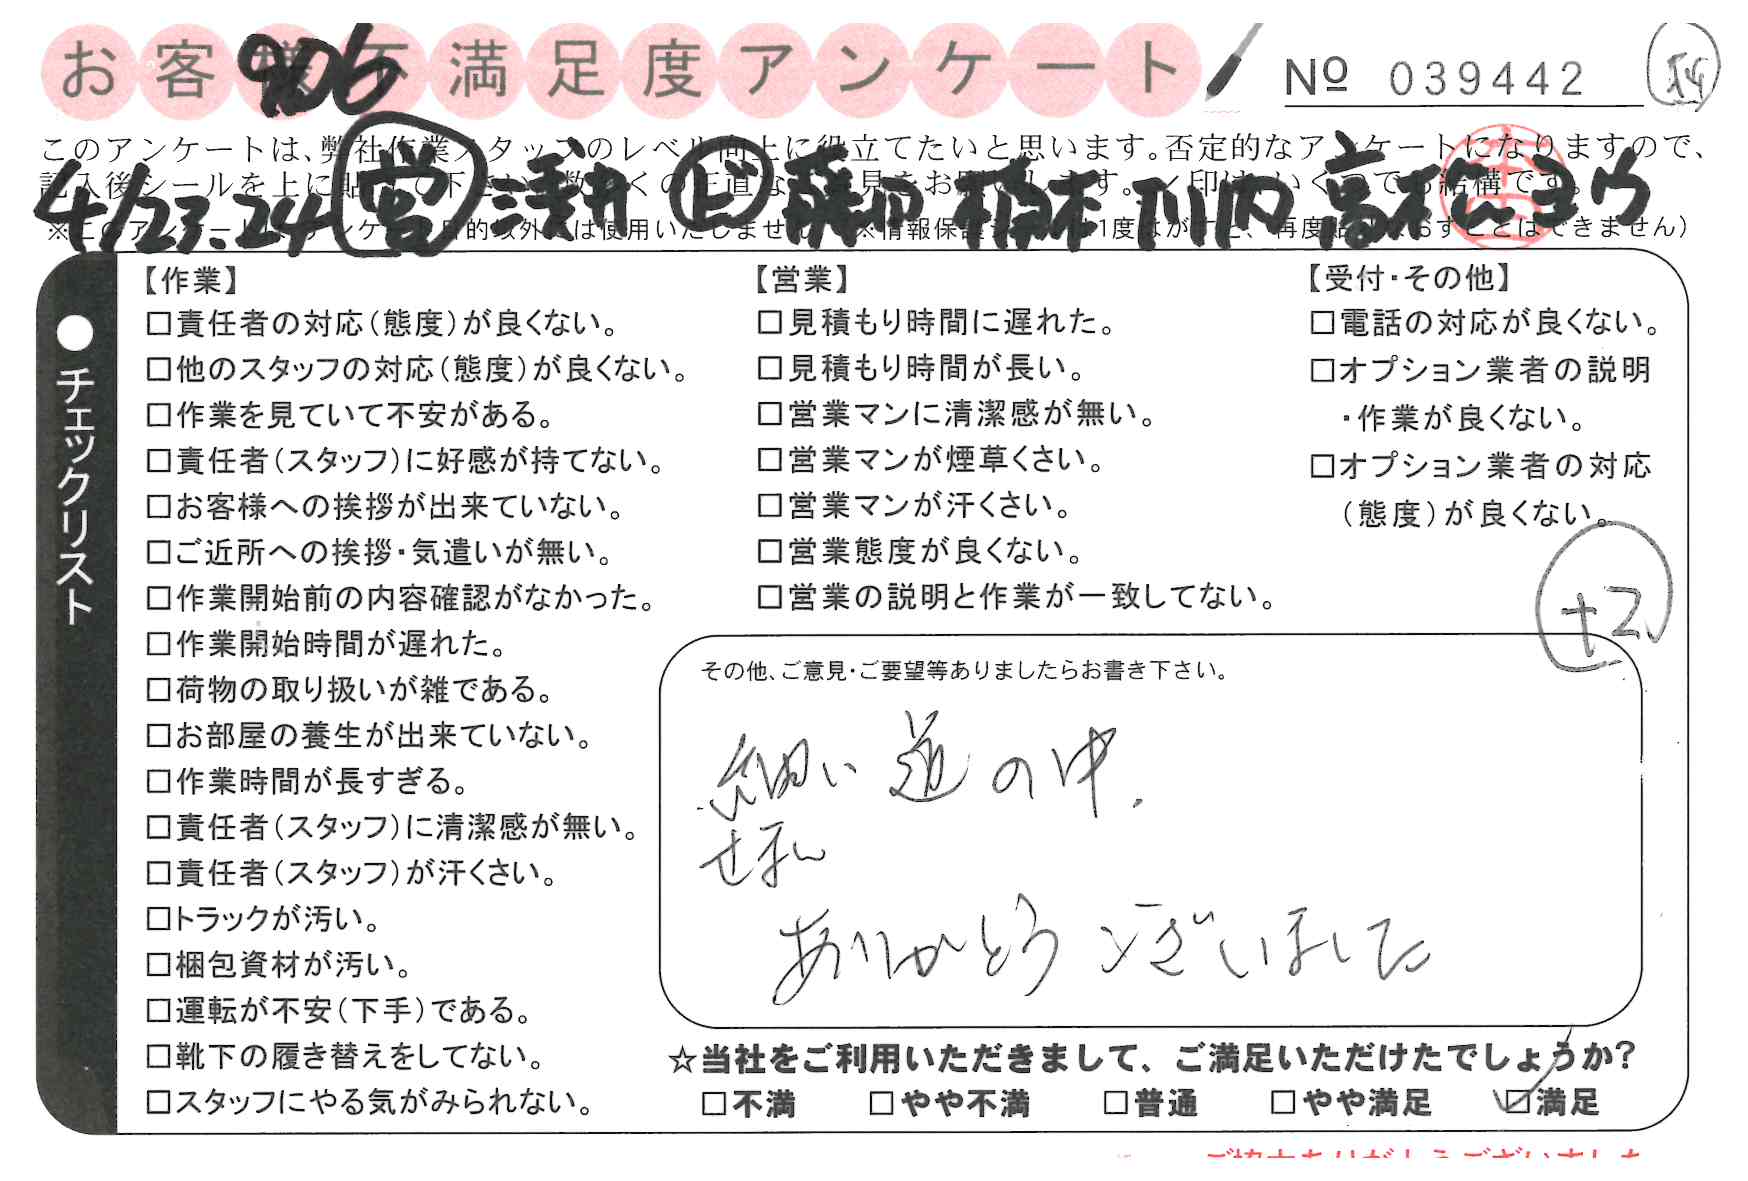 お客様不満足度アンケート
906
№ 039442
このアンケートは、弊社作業スタッフのレベル向上に役立てたいと思います。否定的なアンケートになりますので、
4/23.24 営 ビ 植村 川内 高松
【作業】
□責任者の対応(態度)が良くない。
□他のスタッフの対応(態度)が良くない。
□作業を見ていて不安がある。
□責任者(スタッフ)に好感が持てない。
□お客様への挨拶が出来ていない。
□ご近所への挨拶・気遣いが無い。
□作業開始前の内容確認がなかった。
□作業開始時間が遅れた。
□荷物の取り扱いが雑である。
□お部屋の養生が出来ていない。
□作業時間が長すぎる。
□責任者(スタッフ)に清潔感が無い。
□責任者(スタッフ)が汗くさい。
□トラックが汚い。
□梱包資材が汚い。
□運転が不安(下手)である。
□靴下の履き替えをしてない。
□スタッフにやる気がみられない。
【営業】
□見積もり時間に遅れた。
□見積もり時間が長い。
□営業マンに清潔感が無い。
□営業マンが煙草くさい。
□営業マンが汗くさい。
□営業態度が良くない。
□営業の説明と作業が一致してない。
【受付・その他】
□電話の対応が良くない。
□オプション業者の説明
・作業が良くない。
□オプション業者の対応
(態度)が良くない。
+2
●チェックリスト
その他、ご意見・ご要望等ありましたらお書き下さい。
細い道の中.
ありがとうございました
☆当社をご利用いただきまして、ご満足いただけたでしょうか?
□不満 □やや不満 □普通 □やや満足 ☑満足
ご協力ありがとうございました